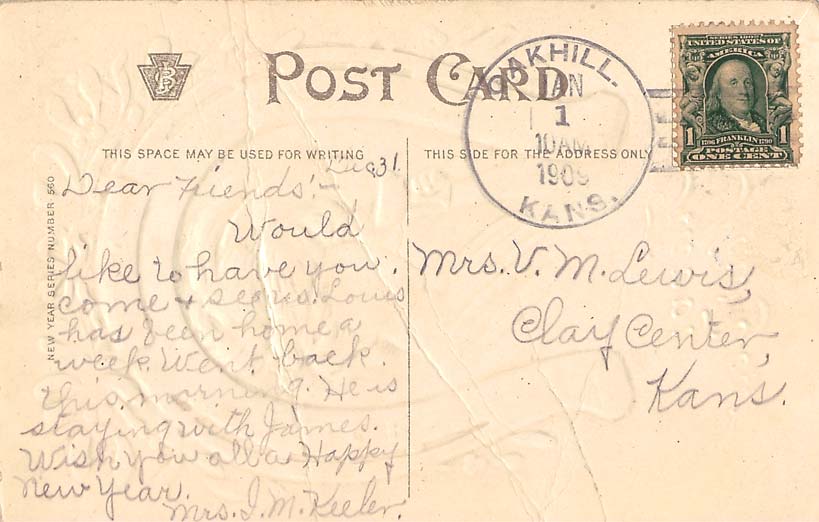 POST CARD
THIS SPACE MAY BE USED FOR WRITING
THIS SIDE FOR THE ADDRESS ONLY
NEW YEAR SERIES NUMBER 560
OAKHILL.
JAN
1
10AM
1909
KANS.
SERIES 1902
UNITED STATES OF
AMERICA
1 1
1706 FRANKLIN 1790
POSTAGE
ONE CENT
Dec 31
Dear Friends:-
Would
like to have you
come + see us. Louis
has been home a
week. Went back
this morning. He is
staying with James.
Wish you all a Happy
New Year.
Mrs. I. M. Keeler.
Mrs. V. M. Lewis,
Clay Center,
Kans.